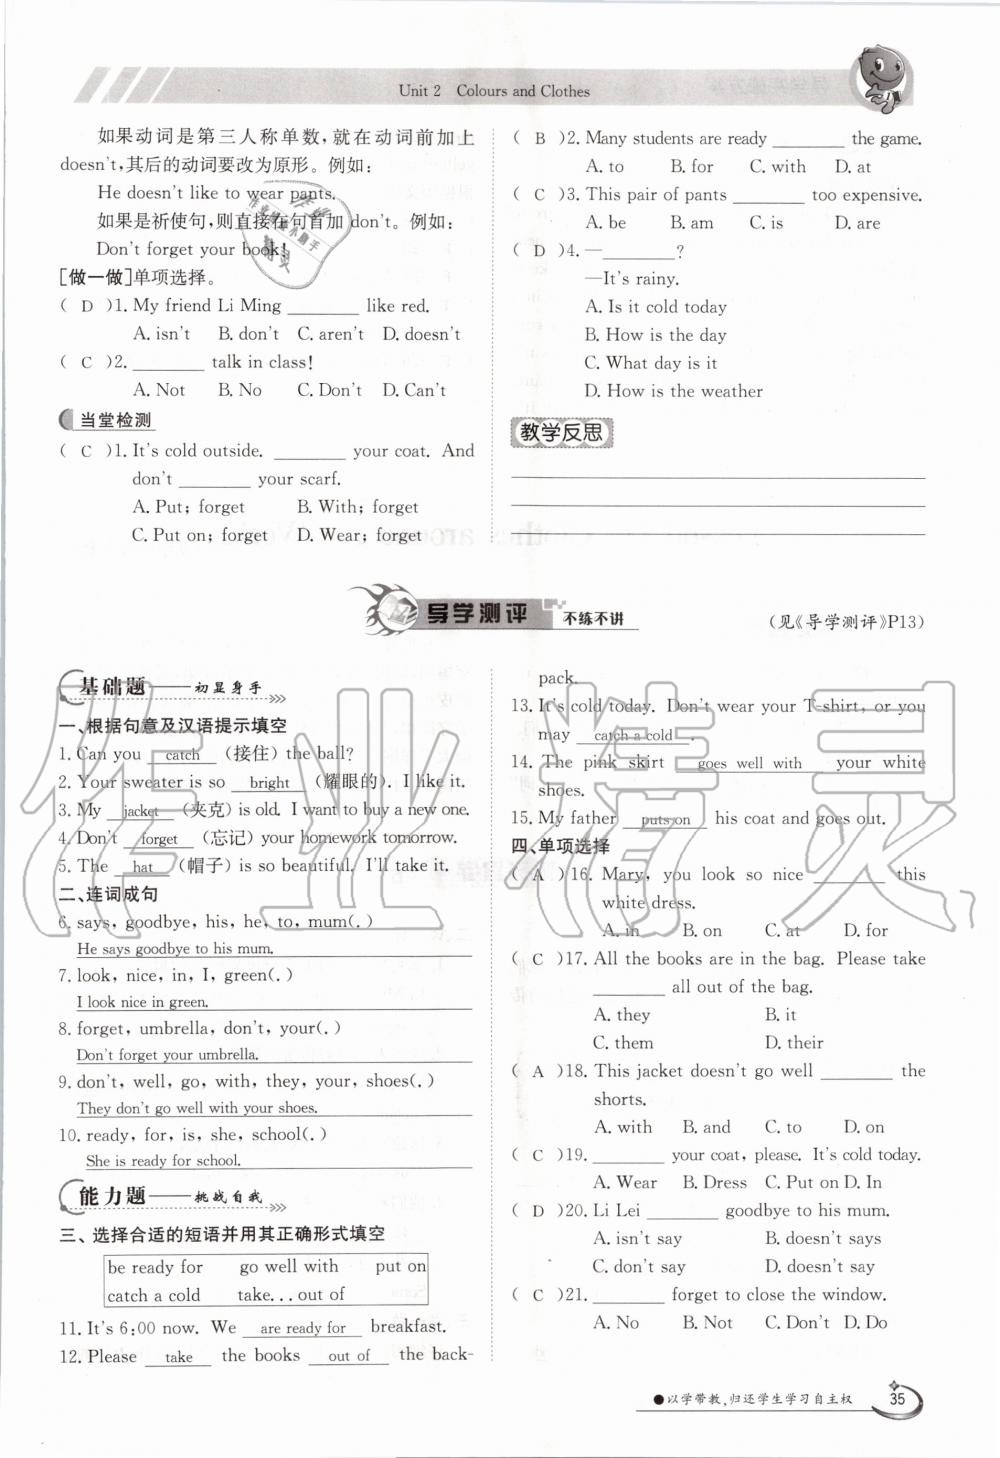 Unit 2 Colours and Clothes
如果动词是第三人称单数,就在动词前加上
doesn't,其后的动词要改为原形。例如:
He doesn't like to wear pants.
如果是祈使句,则直接在句首加 don't。例如:
Don't forget your book!
[做一做]单项选择。
( D )1. My friend Li Ming ________ like red.
A. isn't B. don't C. aren't D. doesn't
( C )2. ________ talk in class!
A. Not B. No C. Don't D. Can't
当堂检测
( C )1. It's cold outside. ________ your coat. And
don't ________ your scarf.
A. Put; forget B. With; forget
C. Put on; forget D. Wear; forget
( B )2. Many students are ready ________ the game.
A. to B. for C. with D. at
( C )3. This pair of pants ________ too expensive.
A. be B. am C. is D. are
( D )4. —________?
—It's rainy.
A. Is it cold today
B. How is the day
C. What day is it
D. How is the weather
教学反思
导学测评 不练不讲
(见《导学测评》P13)
基础题——初显身手
一、根据句意及汉语提示填空
1. Can you catch (接住) the ball?
2. Your sweater is so bright (耀眼的). I like it.
3. My jacket (夹克) is old. I want to buy a new one.
4. Don't forget (忘记) your homework tomorrow.
5. The hat (帽子) is so beautiful. I'll take it.
二、连词成句
6. says, goodbye, his, he, to, mum(. )
He says goodbye to his mum.
7. look, nice, in, I, green(. )
I look nice in green.
8. forget, umbrella, don't, your(. )
Don't forget your umbrella.
9. don't, well, go, with, they, your, shoes(. )
They don't go well with your shoes.
10. ready, for, is, she, school(. )
She is ready for school.
能力题——挑战自我
三、选择合适的短语并用其正确形式填空
be ready for go well with put on
catch a cold take...out of
11. It's 6:00 now. We are ready for breakfast.
12. Please take the books out of the back-
pack.
13. It's cold today. Don't wear your T-shirt, or you
may catch a cold .
14. The pink skirt goes well with your white
shoes.
15. My father puts on his coat and goes out.
四、单项选择
( A )16. Mary, you look so nice ________ this
white dress.
A. in B. on C. at D. for
( C )17. All the books are in the bag. Please take
________ all out of the bag.
A. they B. it
C. them D. their
( A )18. This jacket doesn't go well ________ the
shorts.
A. with B. and C. to D. on
( C )19. ________ your coat, please. It's cold today.
A. Wear B. Dress C. Put on D. In
( D )20. Li Lei ________ goodbye to his mum.
A. isn't say B. doesn't says
C. don't say D. doesn't say
( C )21. ________ forget to close the window.
A. No B. Not C. Don't D. Do
●以学带教,归还学生学习自主权
35
作业精灵